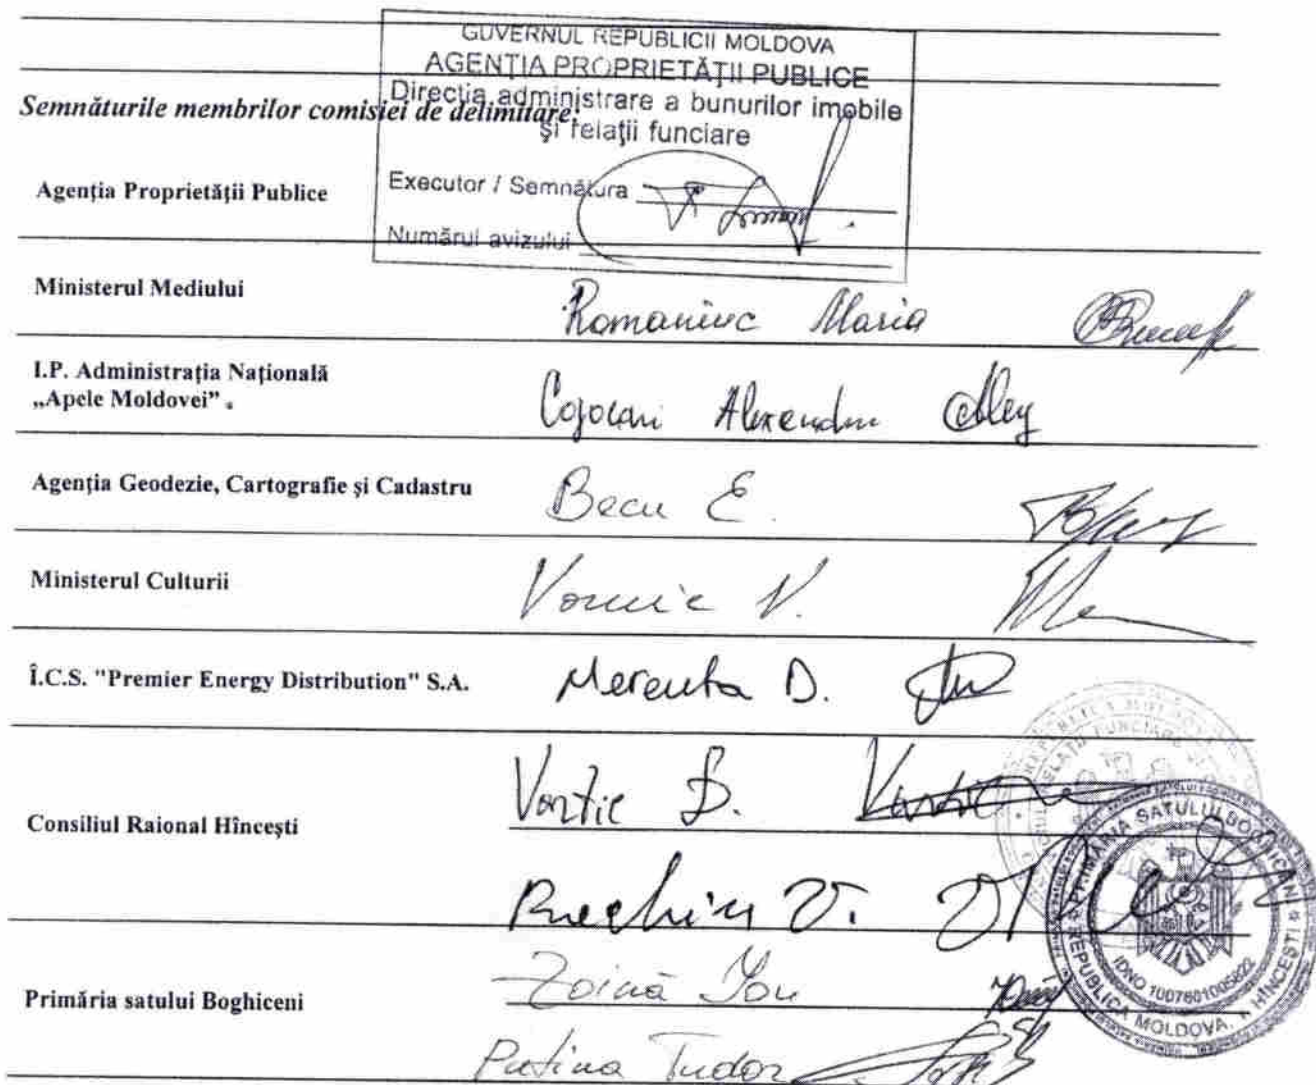 GUVERNUL REPUBLICII MOLDOVA
AGENȚIA PROPRIETĂȚII PUBLICE
Direcția administrare a bunurilor imobile
și relații funciare
Semnăturile membrilor comisiei de delimitare:
Agenția Proprietății Publice
Executor / Semnătura
Numărul avizului
Ministerul Mediului
Romaniuc Maria
I.P. Administrația Națională
„Apele Moldovei”
Cojocari Alexandru
Agenția Geodezie, Cartografie și Cadastru
Becu E.
Ministerul Culturii
Vornic V.
Î.C.S. "Premier Energy Distribution" S.A.
Merenta D.
Vortic B.
Consiliul Raional Hîncești
V.
Zoină Ion
Primăria satului Boghiceni
Putina Tudor
PRIMĂRIA SATULUI BOGHICENI
REPUBLICA MOLDOVA, R. HÎNCEȘTI
IDNO 1007601005822